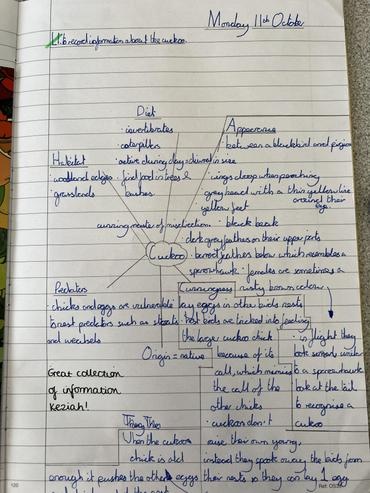 Monday 11th October
L.I. to record information about the cuckoo.
Diet
· invertibrates
· caterpillers
· active during day = diurnal
find food in trees &
bushes
Appearance
between a blackbird and pigeon
in size
wings droop when perching
grey head with a thin yellow line
around their
eye
yellow feet
· black beak
· dark grey feathers on their upper parts
· barred feathers below which resembles a
sparrowhawk · females are sometimes a
rusty brown colour
Habitat
· woodland edges
· grasslands
cunning master of misdirection
Cuckoo
Predators
· chicks and eggs are vulnerable
to nest predators such as stoats
and weasels
Cunningness
lay eggs in other birds nests
· host birds are tricked into feeding
the large cuckoo chick
because of its
call, which mimics
the call of the
other chicks
· cuckoos don't
raise their own young,
instead they spook away the birds from
their nests so they can lay 1 egg
· in flight they
look similar
to a sparrowhawk
look at the tail
to recognise a
cuckoo
Origin = native
Great collection
of information
Keziah!
When the cuckoo
chick is old
enough it pushes the other eggs
120